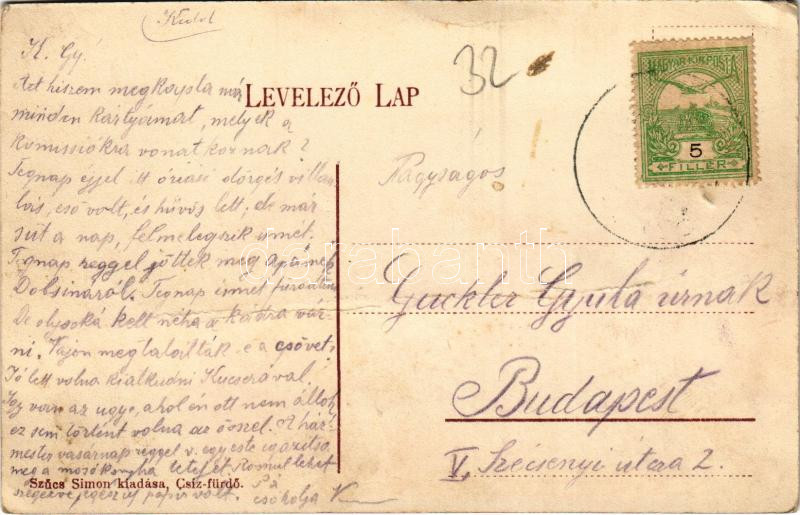 K. Gy!
Azt hiszem megkapta már
minden kártyámat, melyek a
vonatkoznak?
Tegnap éjjel itt óriási dörgés villám-
lás, eső volt, és hűvös lett; de már
süt a nap, felmelegszik ismét.
Tegnap reggel jöttek meg apámék
Tegnap ismét
De olysoká kell néha a kádra vár-
ni. Vajon megtalálták e a csövet?
Jó lett volna kialkudni Kucserával,
Így van az ugye, ahol én ott nem állok
ez sem történt volna az ősszel. A ház-
mester vasárnap reggel v. egy este igazítsa
meg a mosókonyha tetejét
papir volt. Pá
csókolja
LEVELEZŐ LAP
32
MAGYAR KIR. POSTA
5
FILLÉR
Nagyságos
Guckler Gyula úrnak
Budapest
V, Szécsenyi útcza 2.
Szűcs Simon kiadása, Csíz-fürdő.
darabanth